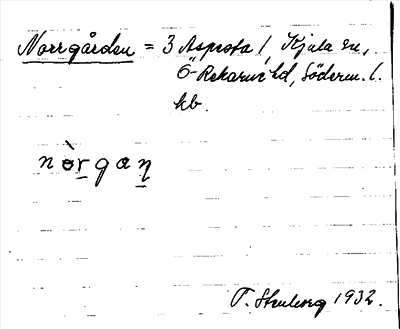 Norrgården = 3 Aspesta /, Kjula sn,
Ö-Rekarne hd, Söderm. l.
hb.
nòrgaŋ
T. Stenborg 1932.